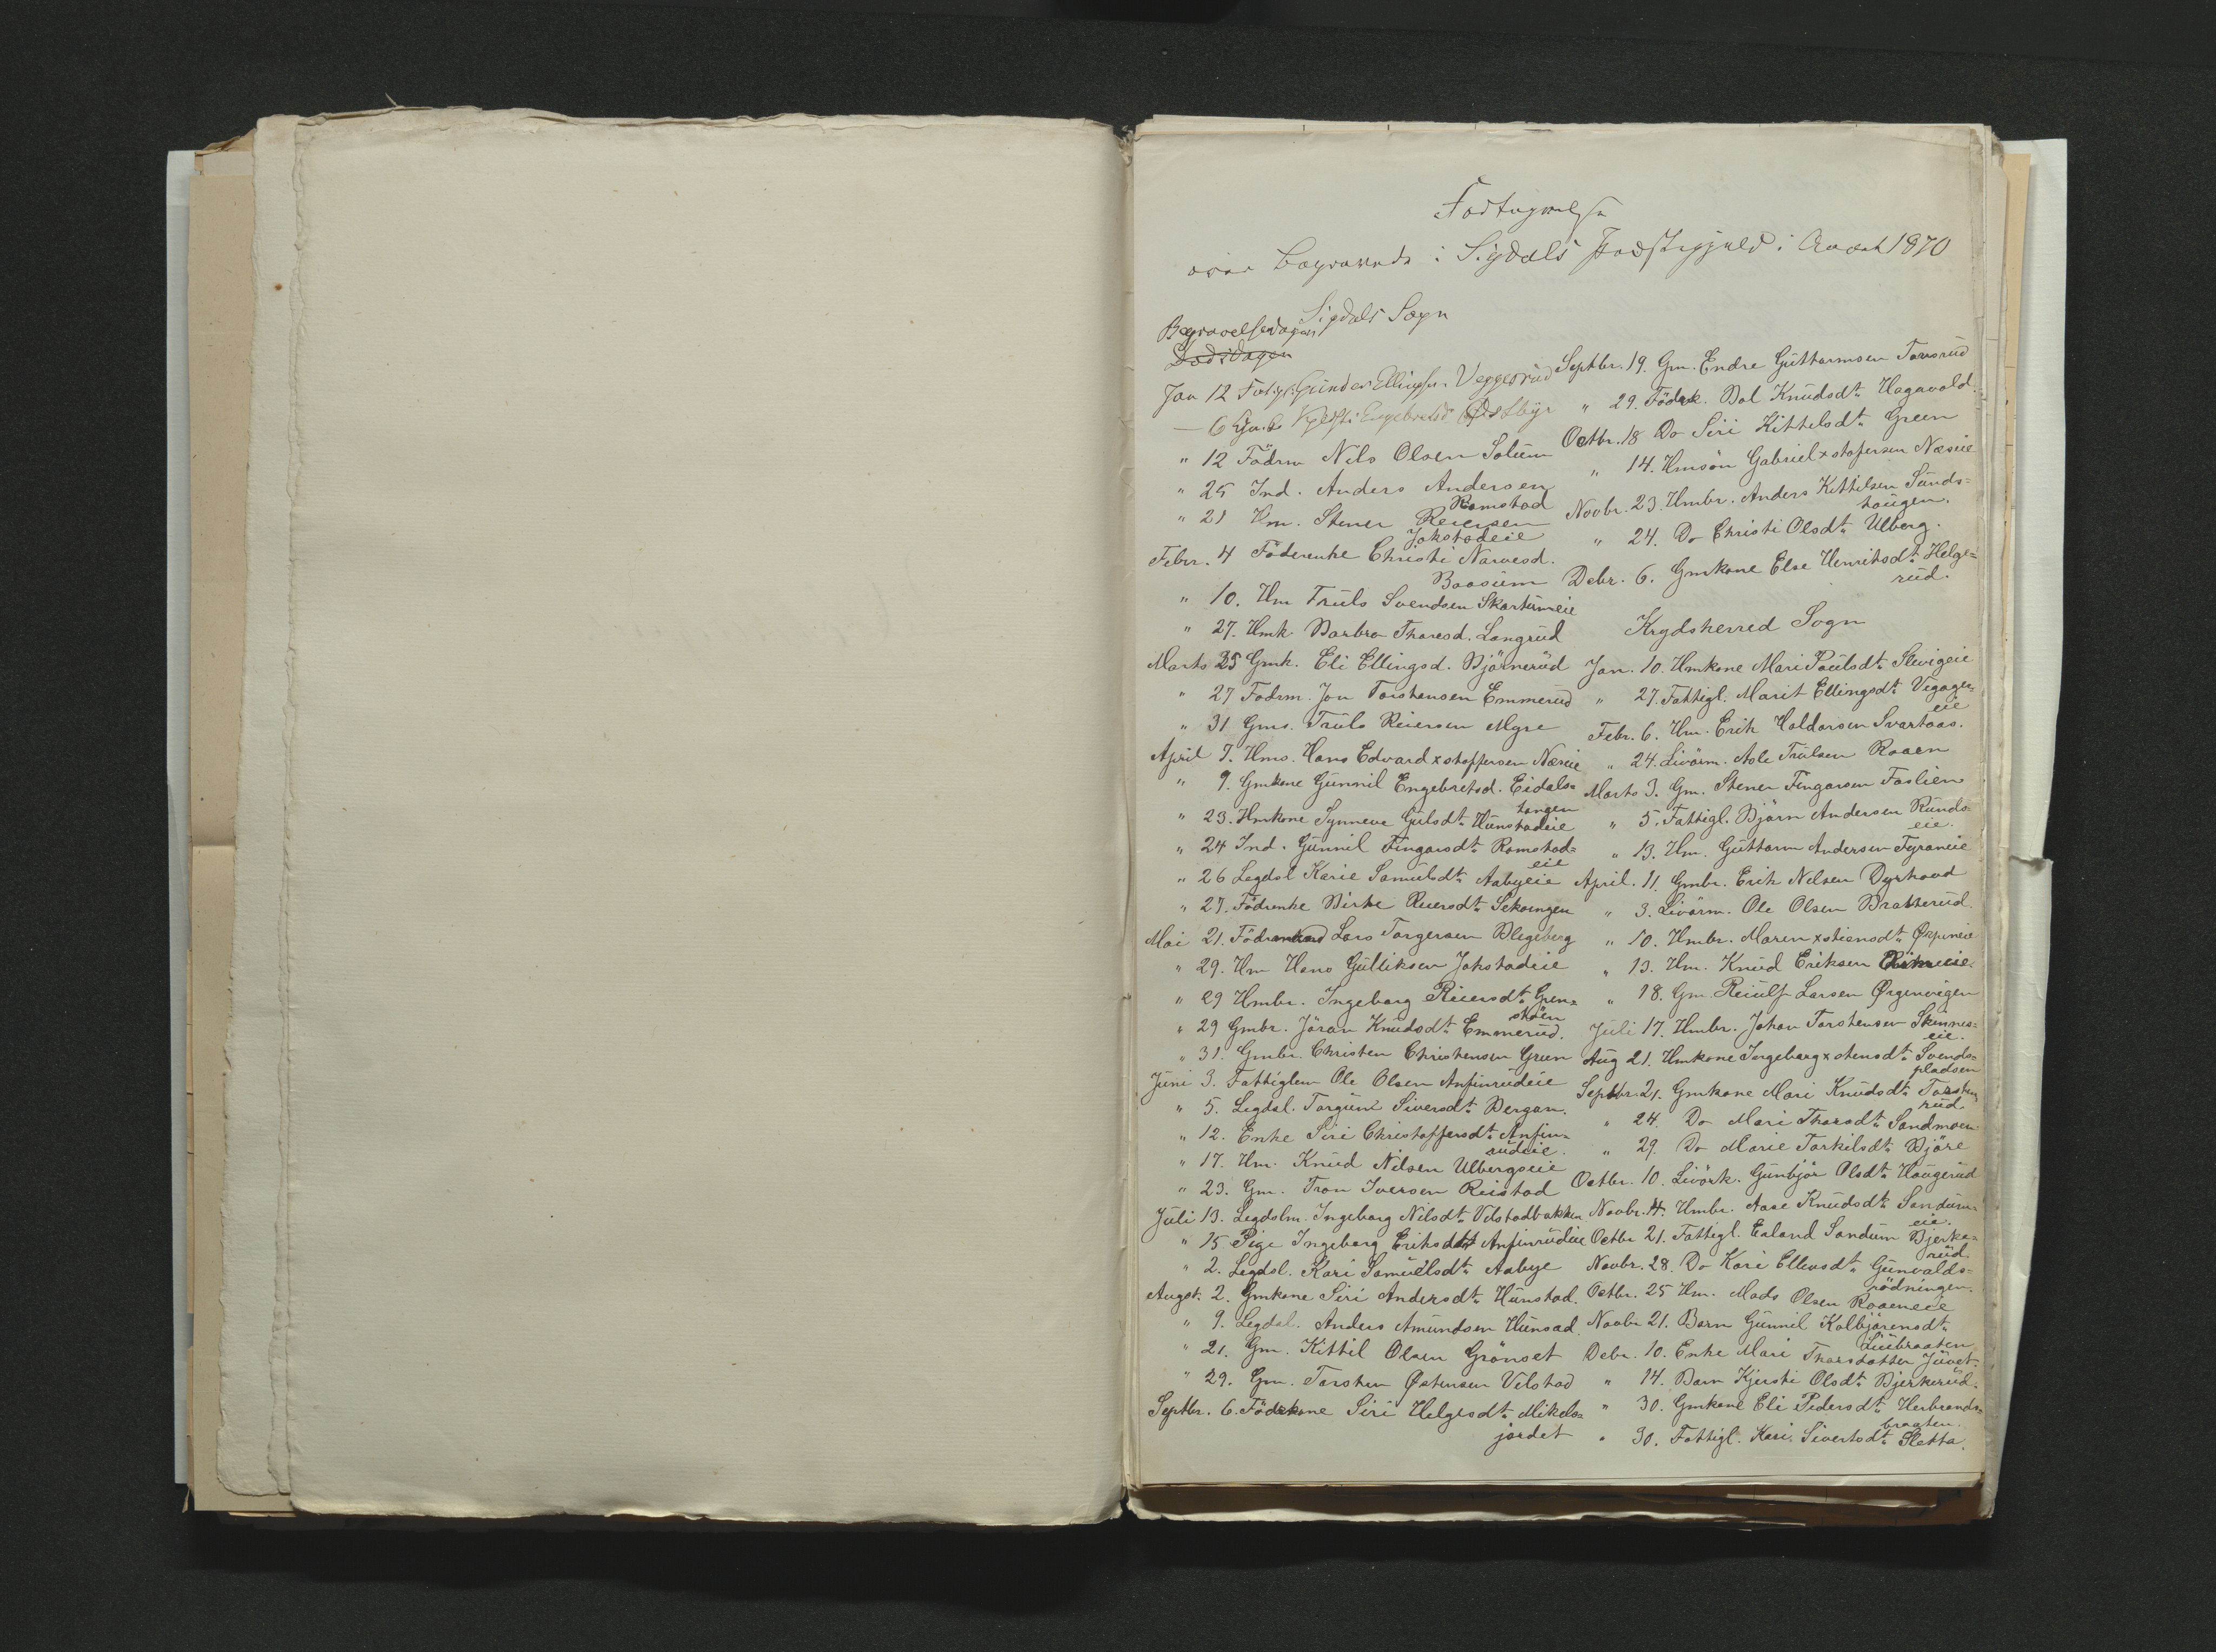 Fortegnelse
over Begravede i Sigdals Præstegjeld i Aaret 1870
Sigdals Sogn
Begravelsesdagen
Dødsdagen
Jan 12 Gunder Ellingsen Veggesrud
— 6 Engebretsd Østbye
" 12 Födrm Nils Olsen Solum
" 25 Ind. Anders Andersen
Ramstad
" 21 Hm. Stener Reiersen
Jokstadeie
Febr. 4 Föderenke Christi Narvesd.
Baasum
" 10. Hm Truls Svendsen Skartumeie
" 27. Hmk Barbro Thoresd. Langrud
Marts 25 Gmk. Eli Ellingsd. Bjørnerud
" 27 Fodrm. Jon Torstensen Emmerud
" 31 Gms. Truls Reiersen Myre
April 7. Hms. Hans Edvard xstoffersen Næseie
" 9. Gmkone Gunnil Engebretsd. Eidals=
tangen
" 23. Hmkone Synneve Gulsdt. Hunstadeie
" 24 Ind. Gunnil Fingarsdt. Ramstad=
eie
" 26 Legdsl Karie Samuelsdt. Aabyeie
" 27. Födrenke Birte Reiersdt.
Mai 21. Födr Lars Torgersen Blegeberg
" 29. Hm Hans Gulliksen Jokstadeie
" 29 Hmbr. Ingeborg Reiersdt. Gren=
skóen
" 29 Gmbr. Jöran Knudsdt. Emmerud.
" 31. Gmbr. Christen Christensen Green
Juni 3. Fattiglem Ole Olsen Anfinrudeie
" 5. Legdsl. Torgund Siversdt. Bergan.
" 12. Enke Siri Christoffersdt. Anfin=
rudeie.
" 17. Hm. Knud Nilsen Ulbergseie
" 23. Gm. Tron Iversen Reistad
Juli 13. Legdslm. Ingeborg Nilsdt. Velstadbakken
" 15 Pige Ingeborg Eriksdtt Anfinrudeie
" 2. Legdsl. Kari Samuelsdt. Aabye
Augst. 2. Gmkone Siri Andersdt. Hunstad.
" 9. Legdsl. Anders Amundsen Hunsad.
" 21. Gm. Kittil Olsen Grönset
" 29. Gm. Torsten Østensen Velstad
Septbr. 6. Födrkone Siri Helgesdt. Mikels=
jordet
Septbr. 19. Gm. Endre Guttormsen Tovsrud
" 29. Födrk. Bol Knudsdt. Hagnvold.
Octbr. 18 Do Siri Kittelsdt. Green
" 14. Hmsön Gabriel xstofersen Næseie
Novbr. 23. Hmbr. Anders Kittilsen Sands=
tangen.
" 24. Do Christi Olsdt. Ulberg.
Debr. 6. Gmkone Else Henriksdt. Helge=
rud.
Krydsherred Sogn
Jan. 10. Hmkone Mari Poulsdt. Slevigeie
" 27. Fattigl. Marit Ellingsdt.
eie
Febr. 6. Hm. Erik Haldorsen Svartaas.
" 24. Livörm. Asle Trulsen Raaen
Marts 3. Gm. Stener Fingarsen Foslien
" 5. Fattigl. Bjørn Andersen Runds=
eie.
" 13. Hm. Guttorm Andersen Fyraneie
April. 11. Gmbr. Erik Nilsen Dyrhovd
" 3. Livörm. Ole Olsen Bratterud.
" 10. Hmbr. Maren xstiansdt.
" 13. Hm. Knud Eriksen
" 18. Gm. Reiulf Larsen Ørgenvigen
Juli 17. Hmbr. Johan Torstensen Skinnes=
eie.
Aug 21. Hmkone Ingeborg xstensdt. Svends=
pladsen
Septbr. 21. Gmkone Mari Knudsdt. Torsten
rud.
" 24. Do Mari Thorsdt. Sandmoen
" 29. Do Marie Torkilsdt. Björe
Octbr. 10. Livörk. Gunbjör Olsdt. Haugerud
Novbr. 4. Hmbr. Aase Knudsdt. Sandum=
eie.
Octbr 21. Fattigl. Erland Sandum Bjerke=
rud.
Novbr. 28. Do Kari Ellevsdt. Gunvalds=
rödningen.
Octbr. 25 Hm. Mads Olsen Raaeneie
Novbr 21. Barn Gunnil Kolbjörensdt.
Debr. 10. Enke Mari Thorsdatter Juvet.
" 14. Barn Kjersti Olsdt. Bjerkerud.
" 30. Gmkone Eli Pedersdt. Herbrands=
braaten.
" 30. Fattigl. Kari Sivertsdt. Sletta.